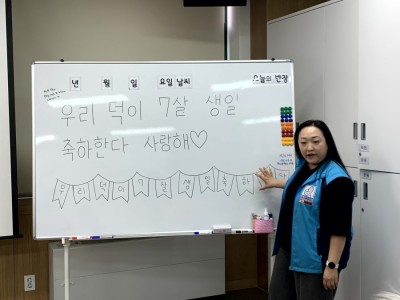 년 월 일 요일 날씨 오늘의 반장
우리 덕이 7살 생일
축하한다 사랑해♡
우리덕이7살생일축하